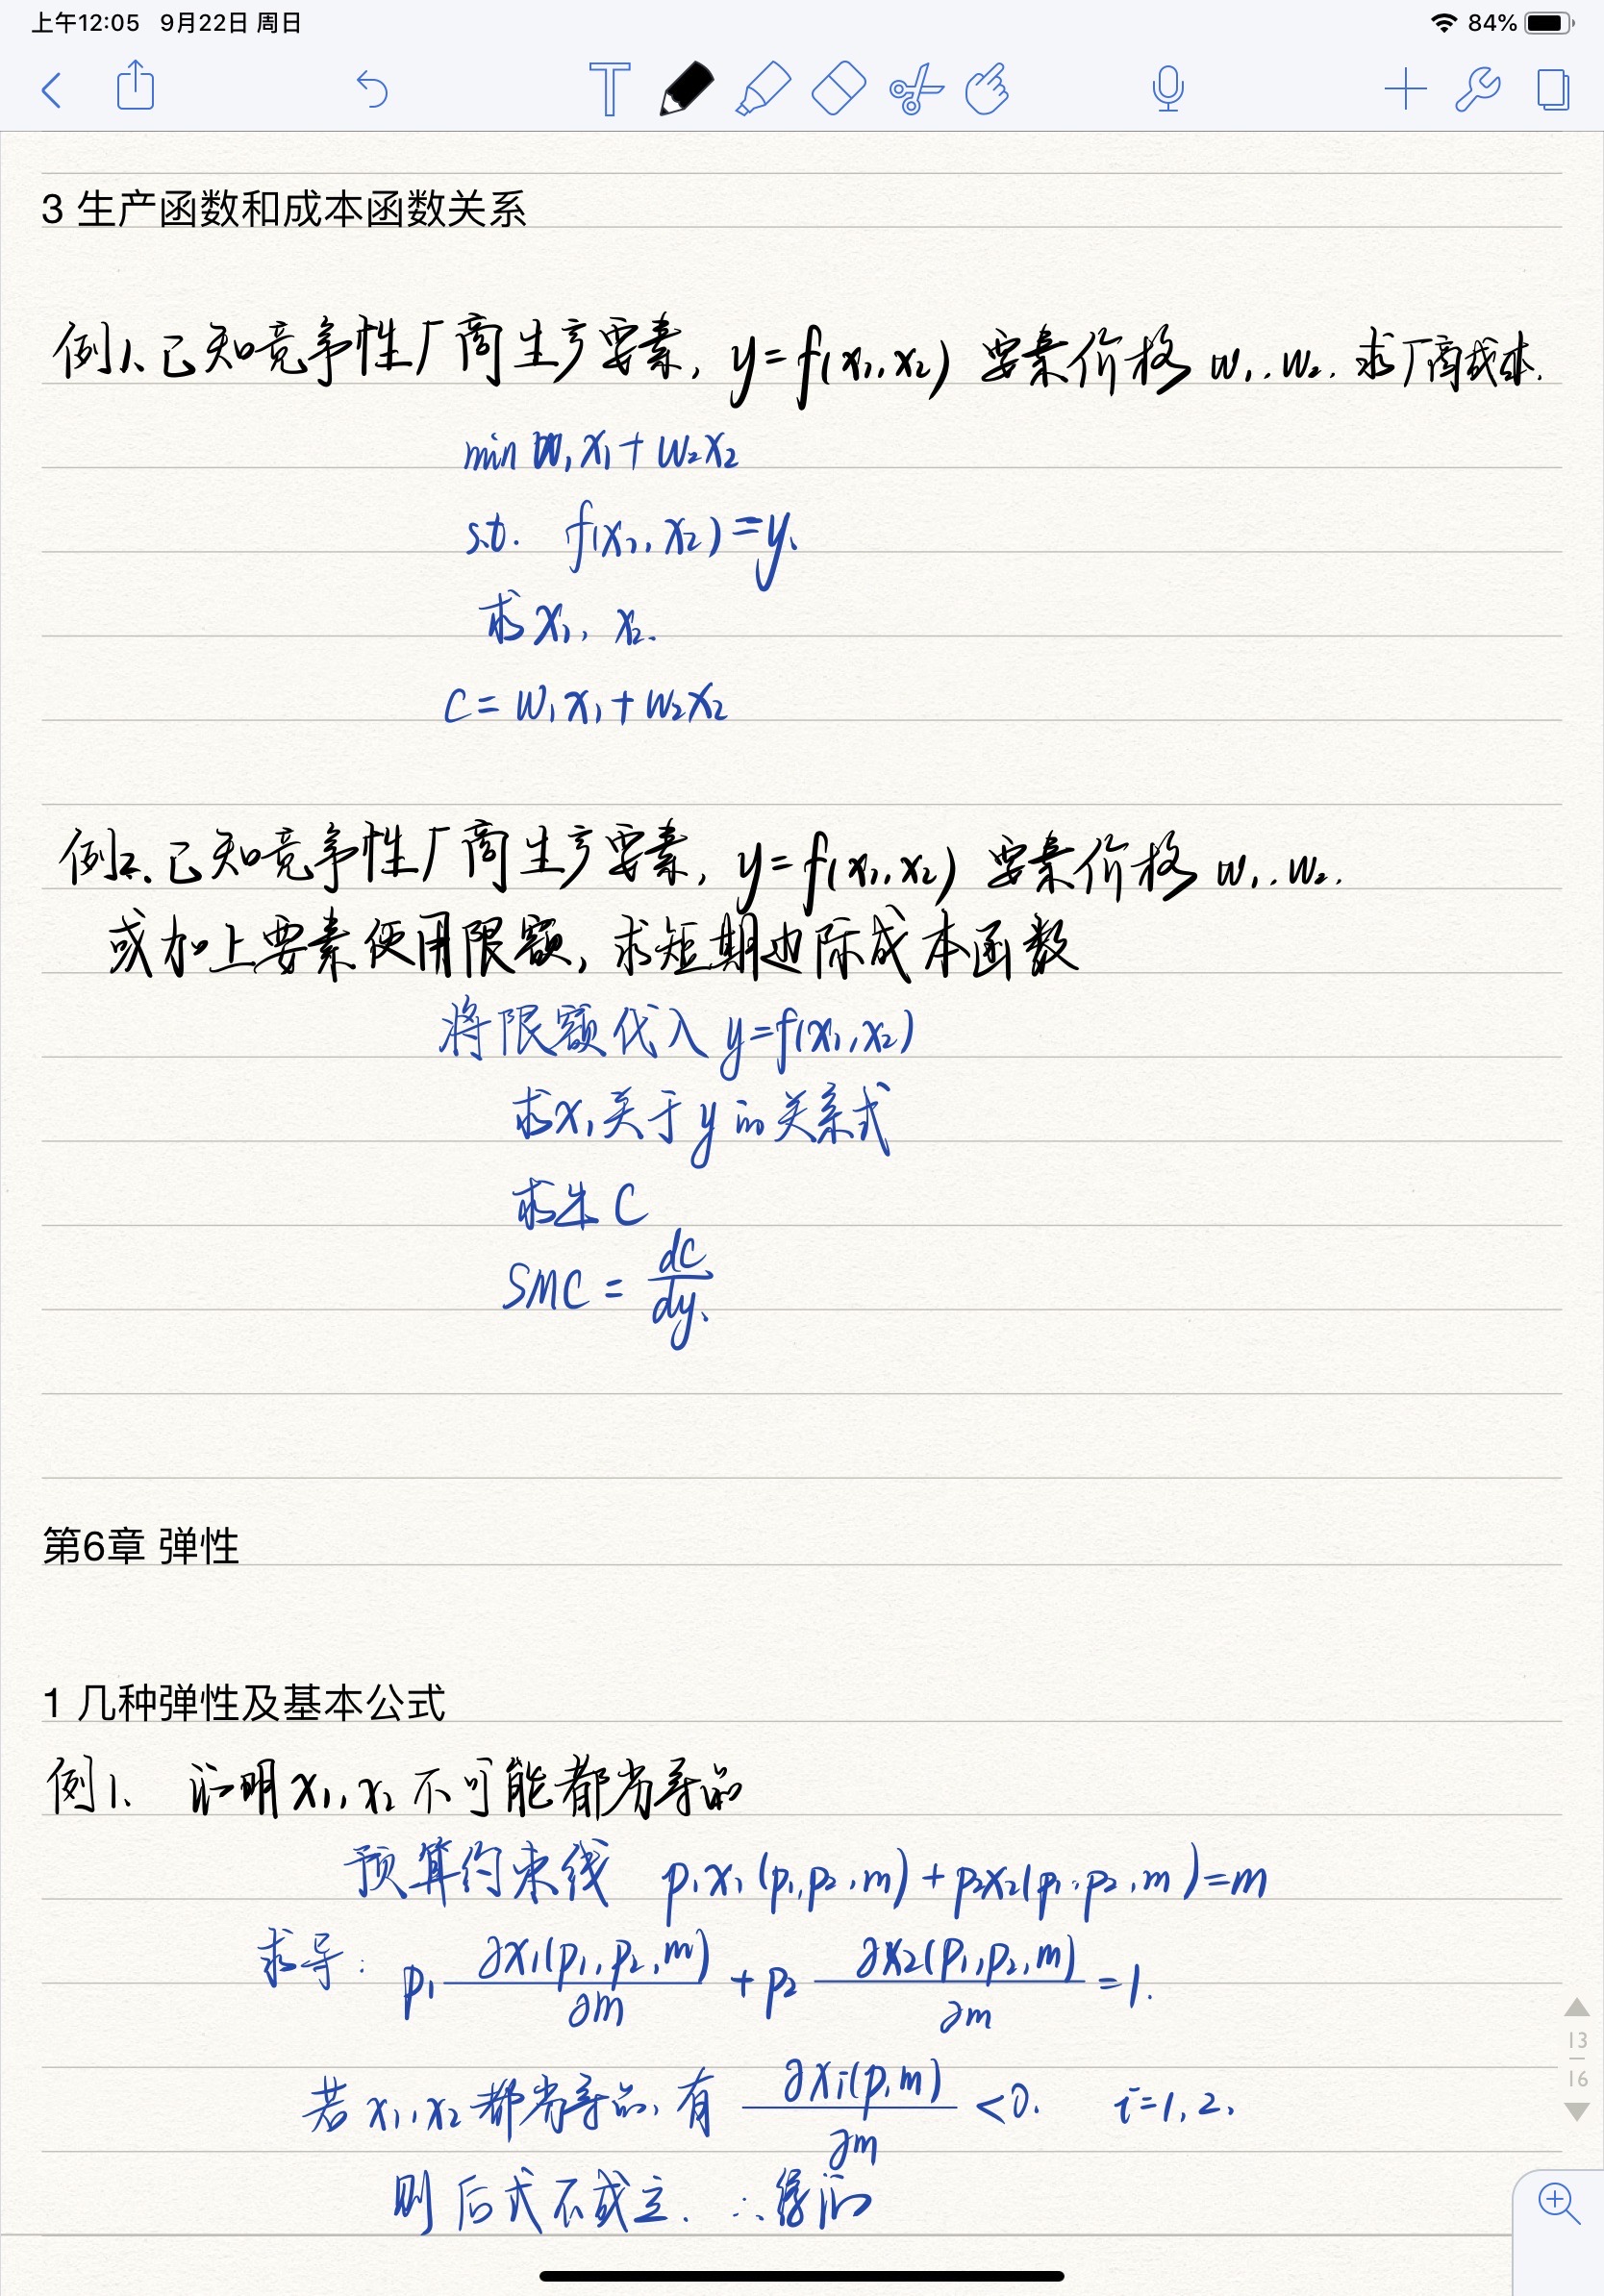 上午12:05 9月22日 周日 84%
3 生产函数和成本函数关系
例1、已知竞争性厂商生产要素, y=f(x₁,x₂) 要素价格 w₁.w₂. 求厂商成本.
min w₁x₁+w₂x₂
s.t. f(x₁,x₂)=y.
求x₁, x₂.
C=w₁x₁+w₂x₂
例2、已知竞争性厂商生产要素, y=f(x₁,x₂) 要素价格 w₁.w₂.
或加上要素使用限额, 求短期边际成本函数
将限额代入 y=f(x₁,x₂)
求x₁关于y的关系式
求出 C
SMC = dC/dy.
第6章 弹性
1 几种弹性及基本公式
例1、 证明x₁,x₂不可能都劣等品
预算约束线 p₁x₁(p₁,p₂,m)+p₂x₂(p₁,p₂,m)=m
求导: p₁ ∂x₁(p₁,p₂,m)/∂m + p₂ ∂x₂(p₁,p₂,m)/∂m =1.
若 x₁,x₂都劣等品, 有 ∂xi(p,m)/∂m <0. i=1,2.
则后式不成立. ∴得证
13
16